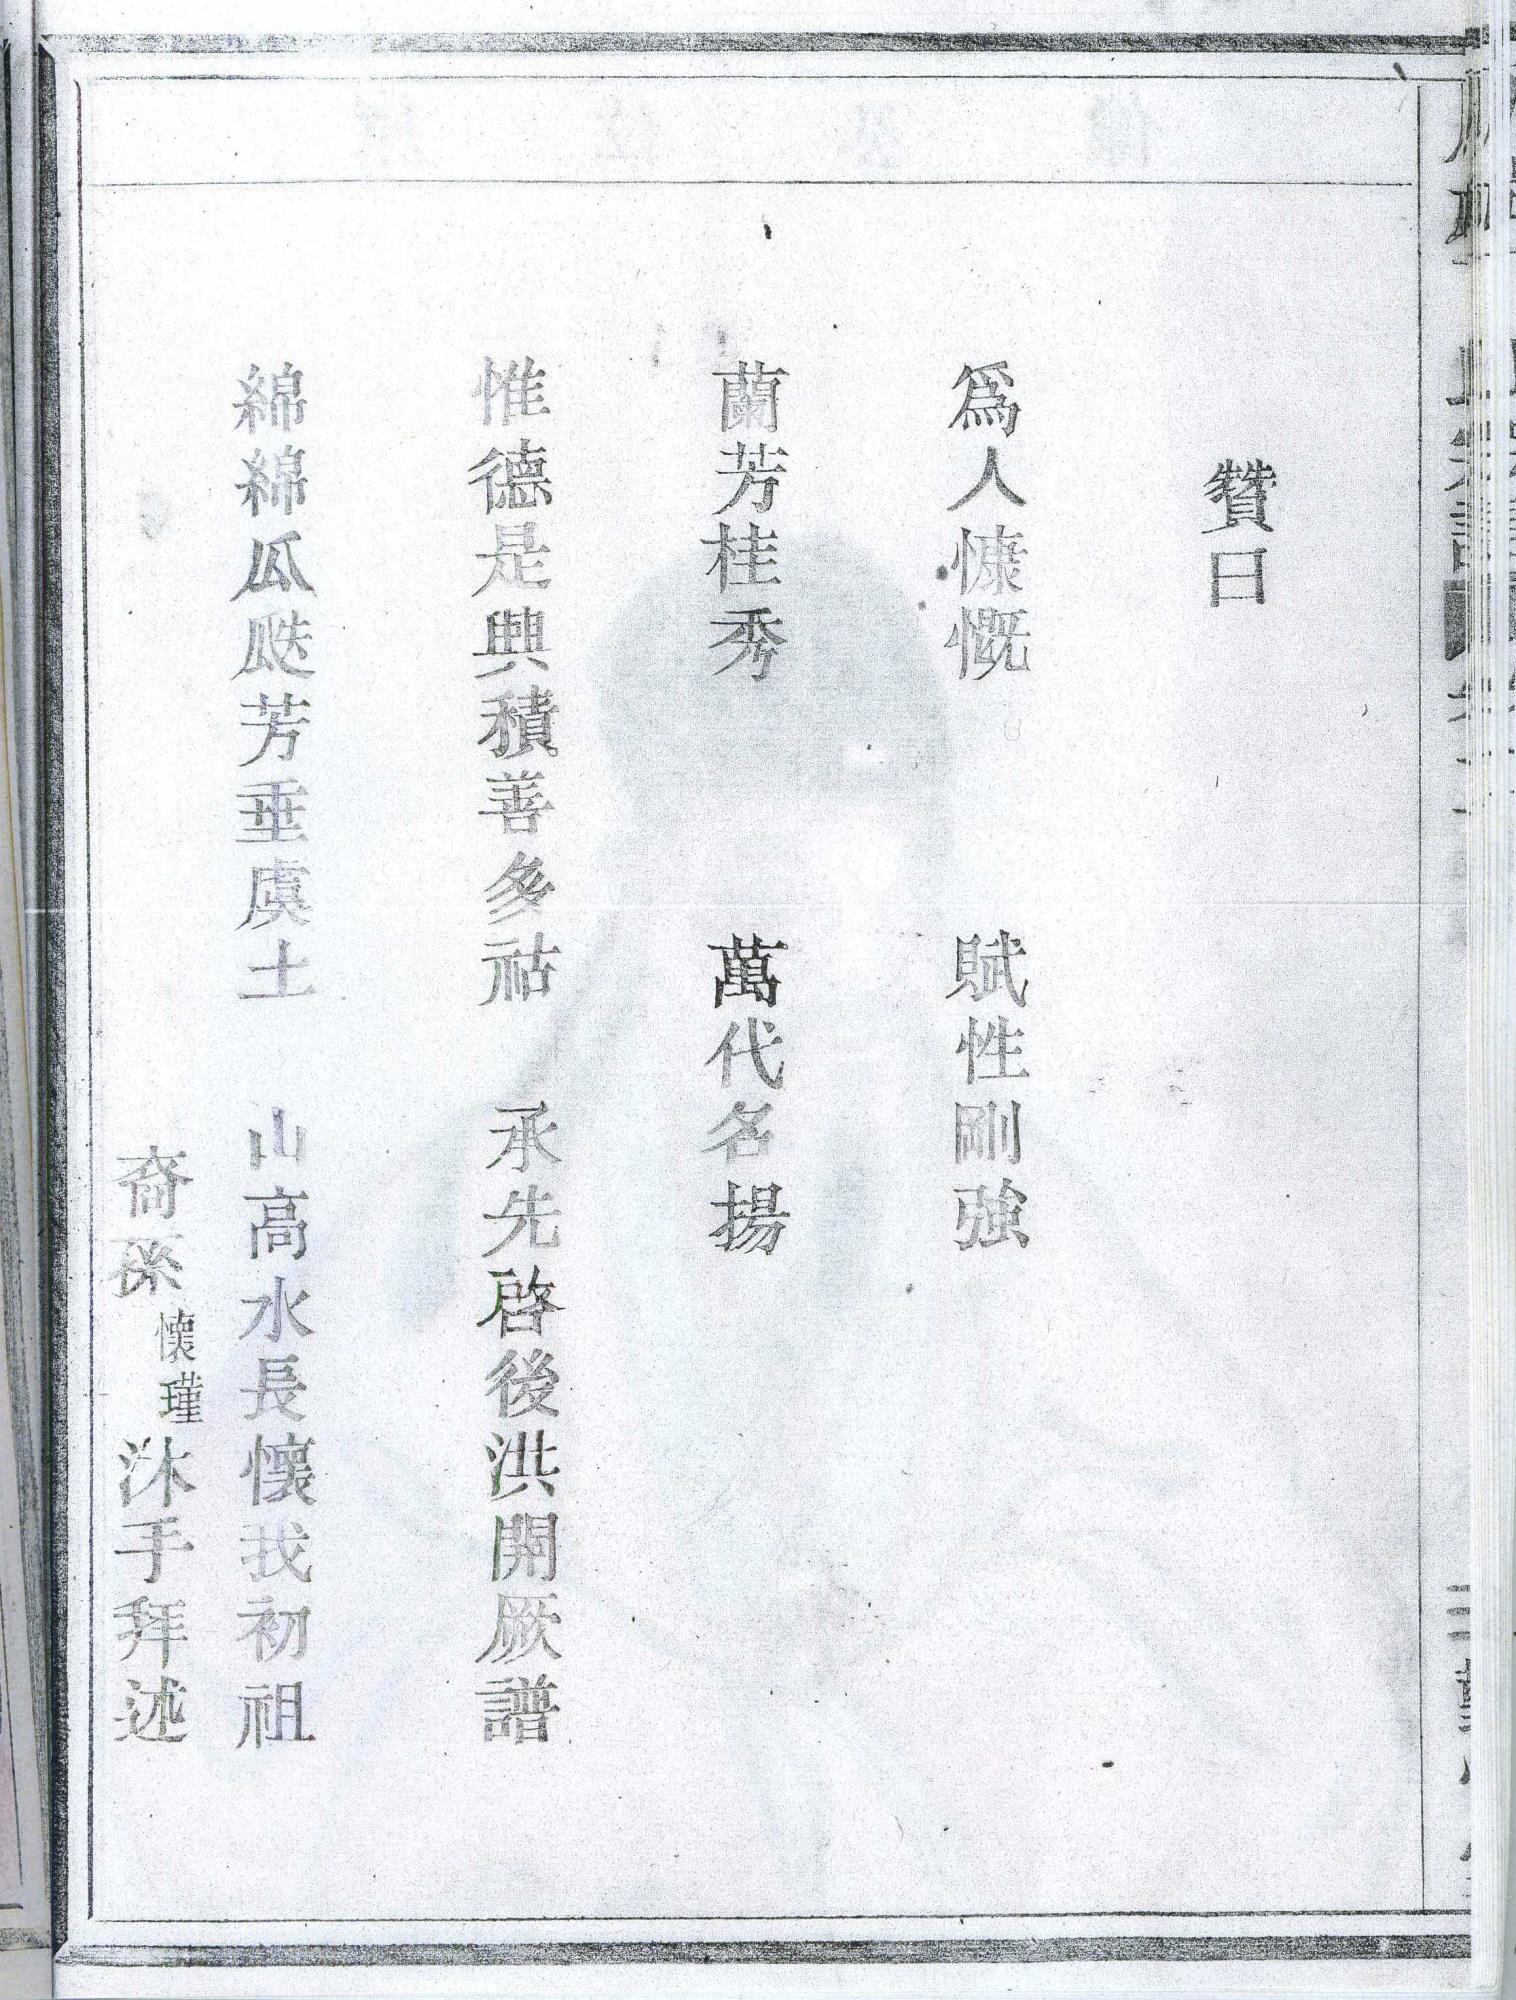 贊曰
爲人慷慨　賦性剛強
蘭芳桂秀　萬代名揚
惟德是興積善多祜　承先啓後洪開厥譜
綿綿瓜瓞芳垂虞土　山高水長懷我初祖
裔孫懷瑾沐手拜述